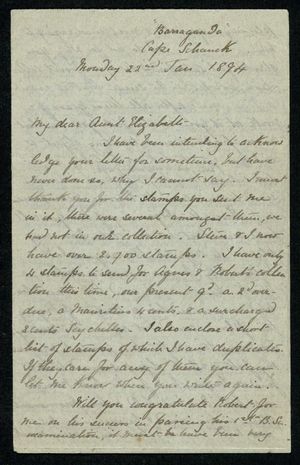 Barragunda
Cape Schanck
Monday 22nd Jan 1894
My dear Aunt Elizabeth
I have been intending to acknow
ledge your letter for sometime, but have
never done so, why I cannot say. I must
thank you for the stamps you sent me
in it, there were several amongst them, we
had not in our collection. & I now
have over 2,900 stamps. I have only
4 stamps to send for Agnes & Roberts collec
tion this time, our present a 2d over
due, a Mauritius 4 cents, & a surcharged
2 cents Seychelles. I also enclose a short
list of stamps of which I have duplicates.
If they care for any of them you can
let me know when you write again.
Will you congratulate Robert for
me on his success in passing his 1st B. Sc.
examination, it must be have been very